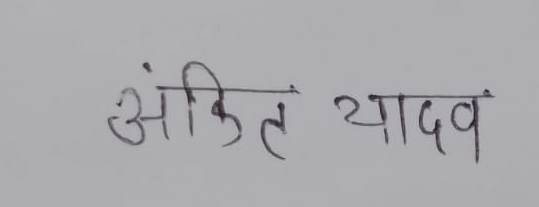 अंकितं यादवं